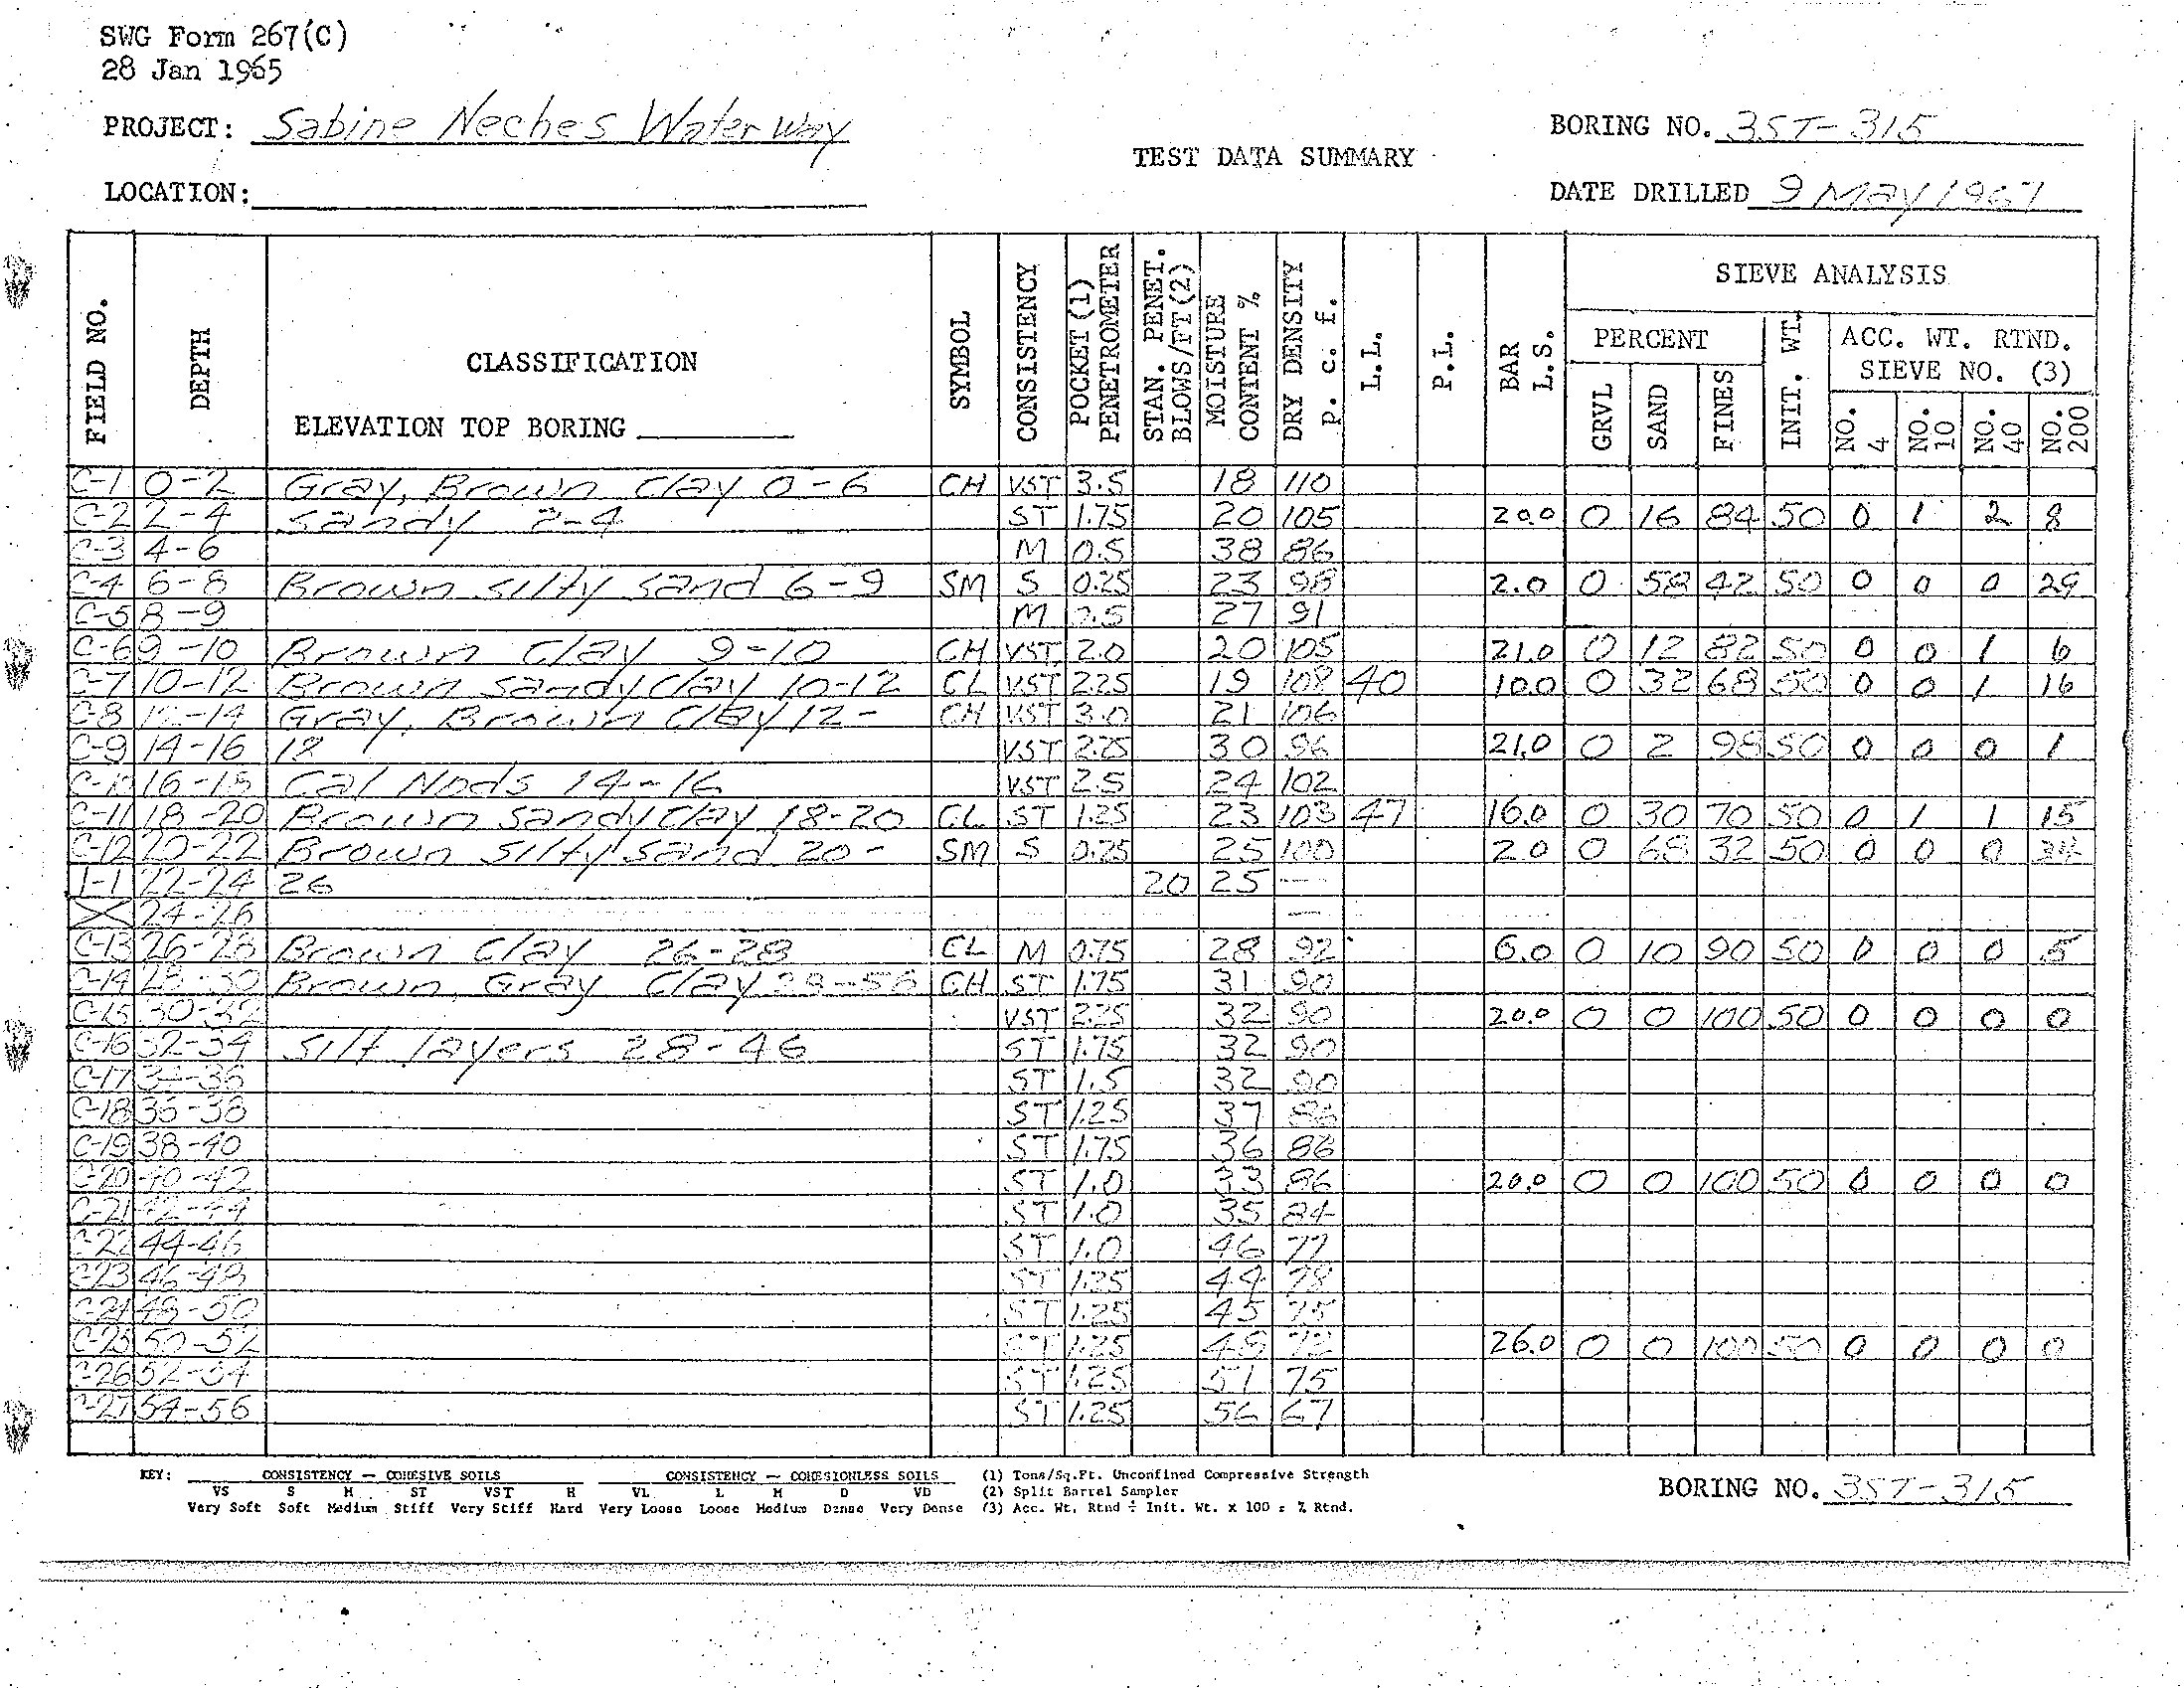 SWG Form 267(C)
28 Jan 1965
PROJECT: Sabine Neches WaterWay
BORING NO. 3ST-315
TEST DATA SUMMARY
LOCATION:
DATE DRILLED 9 May 1967
FIELD NO. DEPTH CLASSIFICATION ELEVATION TOP BORING SYMBOL CONSISTENCY POCKET (1) PENETROMETER STAN. PENET. BLOWS/FT (2) MOISTURE CONTENT % DRY DENSITY p. c. f. L.L. P.L. BAR L.S. SIEVE ANALYSIS
PERCENT GRVL SAND FINES INIT. WT. ACC. WT. RTND. SIEVE NO. (3) NO. 4 NO. 10 NO. 40 NO. 200
C-1 0-2 Gray, Brown Clay 0-6 CH VST 3.5 18 110
C-2 2-4 Sandy 2-4 ST 1.75 20 105 20.0 0 16 84 50 0 1 2 8
C-3 4-6 M 0.5 38 86
C-4 6-8 Brown silty sand 6-9 SM S 0.25 23 98 2.0 0 58 42 50 0 0 0 29
C-5 8-9 M 27 91
C-6 9-10 Brown Clay 9-10 CH VST 2.0 20 105 21.0 0 12 82 50 0 0 1 6
C-7 10-12 Brown sandy clay 10-12 CL VST 2.25 19 108 40 10.0 0 32 68 50 0 0 1 16
C-8 12-14 Gray, Brown Clay 12- CH VST 3.0 21 106
C-9 14-16 18 VST 2.25 30 96 21.0 0 2 98 50 0 0 0 1
C-10 16-18 Cal Nods 14-16 VST 2.5 24 102
C-11 18-20 Brown sandy Clay 18-20 CL ST 1.25 23 103 47 16.0 0 30 70 50 0 1 1 15
C-12 20-22 Brown silty sand 20- SM S 0.25 25 100 2.0 0 68 32 50 0 0 0 34
J-1 22-24 26 20 25 —
24-26 —
C-13 26-28 Brown Clay 26-28 CL M 0.75 28 92 6.0 0 10 90 50 0 0 0 5
C-14 28-30 Brown, Gray Clay 28-56 CH ST 1.75 31 90
C-15 30-32 VST 2.25 32 90 20.0 0 0 100 50 0 0 0 0
C-16 32-34 Silt layers 28-46 ST 1.75 32 90
C-17 34-36 ST 1.5 32 90
C-18 36-38 ST 1.25 37 86
C-19 38-40 ST 1.75 36 86
C-20 40-42 ST 1.0 33 86 20.0 0 0 100 50 0 0 0 0
C-21 42-44 ST 1.0 35 84
C-22 44-46 ST 1.0 46 77
C-23 46-48 ST 1.25 44 78
C-24 48-50 ST 1.25 45 75
C-25 50-52 ST 1.25 48 72 26.0 0 0 100 50 0 0 0 0
C-26 52-54 ST 1.25 51 75
C-27 54-56 ST 1.25 56 67
KEY: CONSISTENCY — COHESIVE SOILS CONSISTENCY — COHESIONLESS SOILS (1) Tons/Sq.Ft. Unconfined Compressive Strength
VS S M ST VST H VL L M D VD (2) Split Barrel Sampler
Very Soft Soft Medium Stiff Very Stiff Hard Very Loose Loose Medium Dense Very Dense (3) Acc. Wt. Rtnd ÷ Init. Wt. x 100 = % Rtnd.
BORING NO. 3ST-315